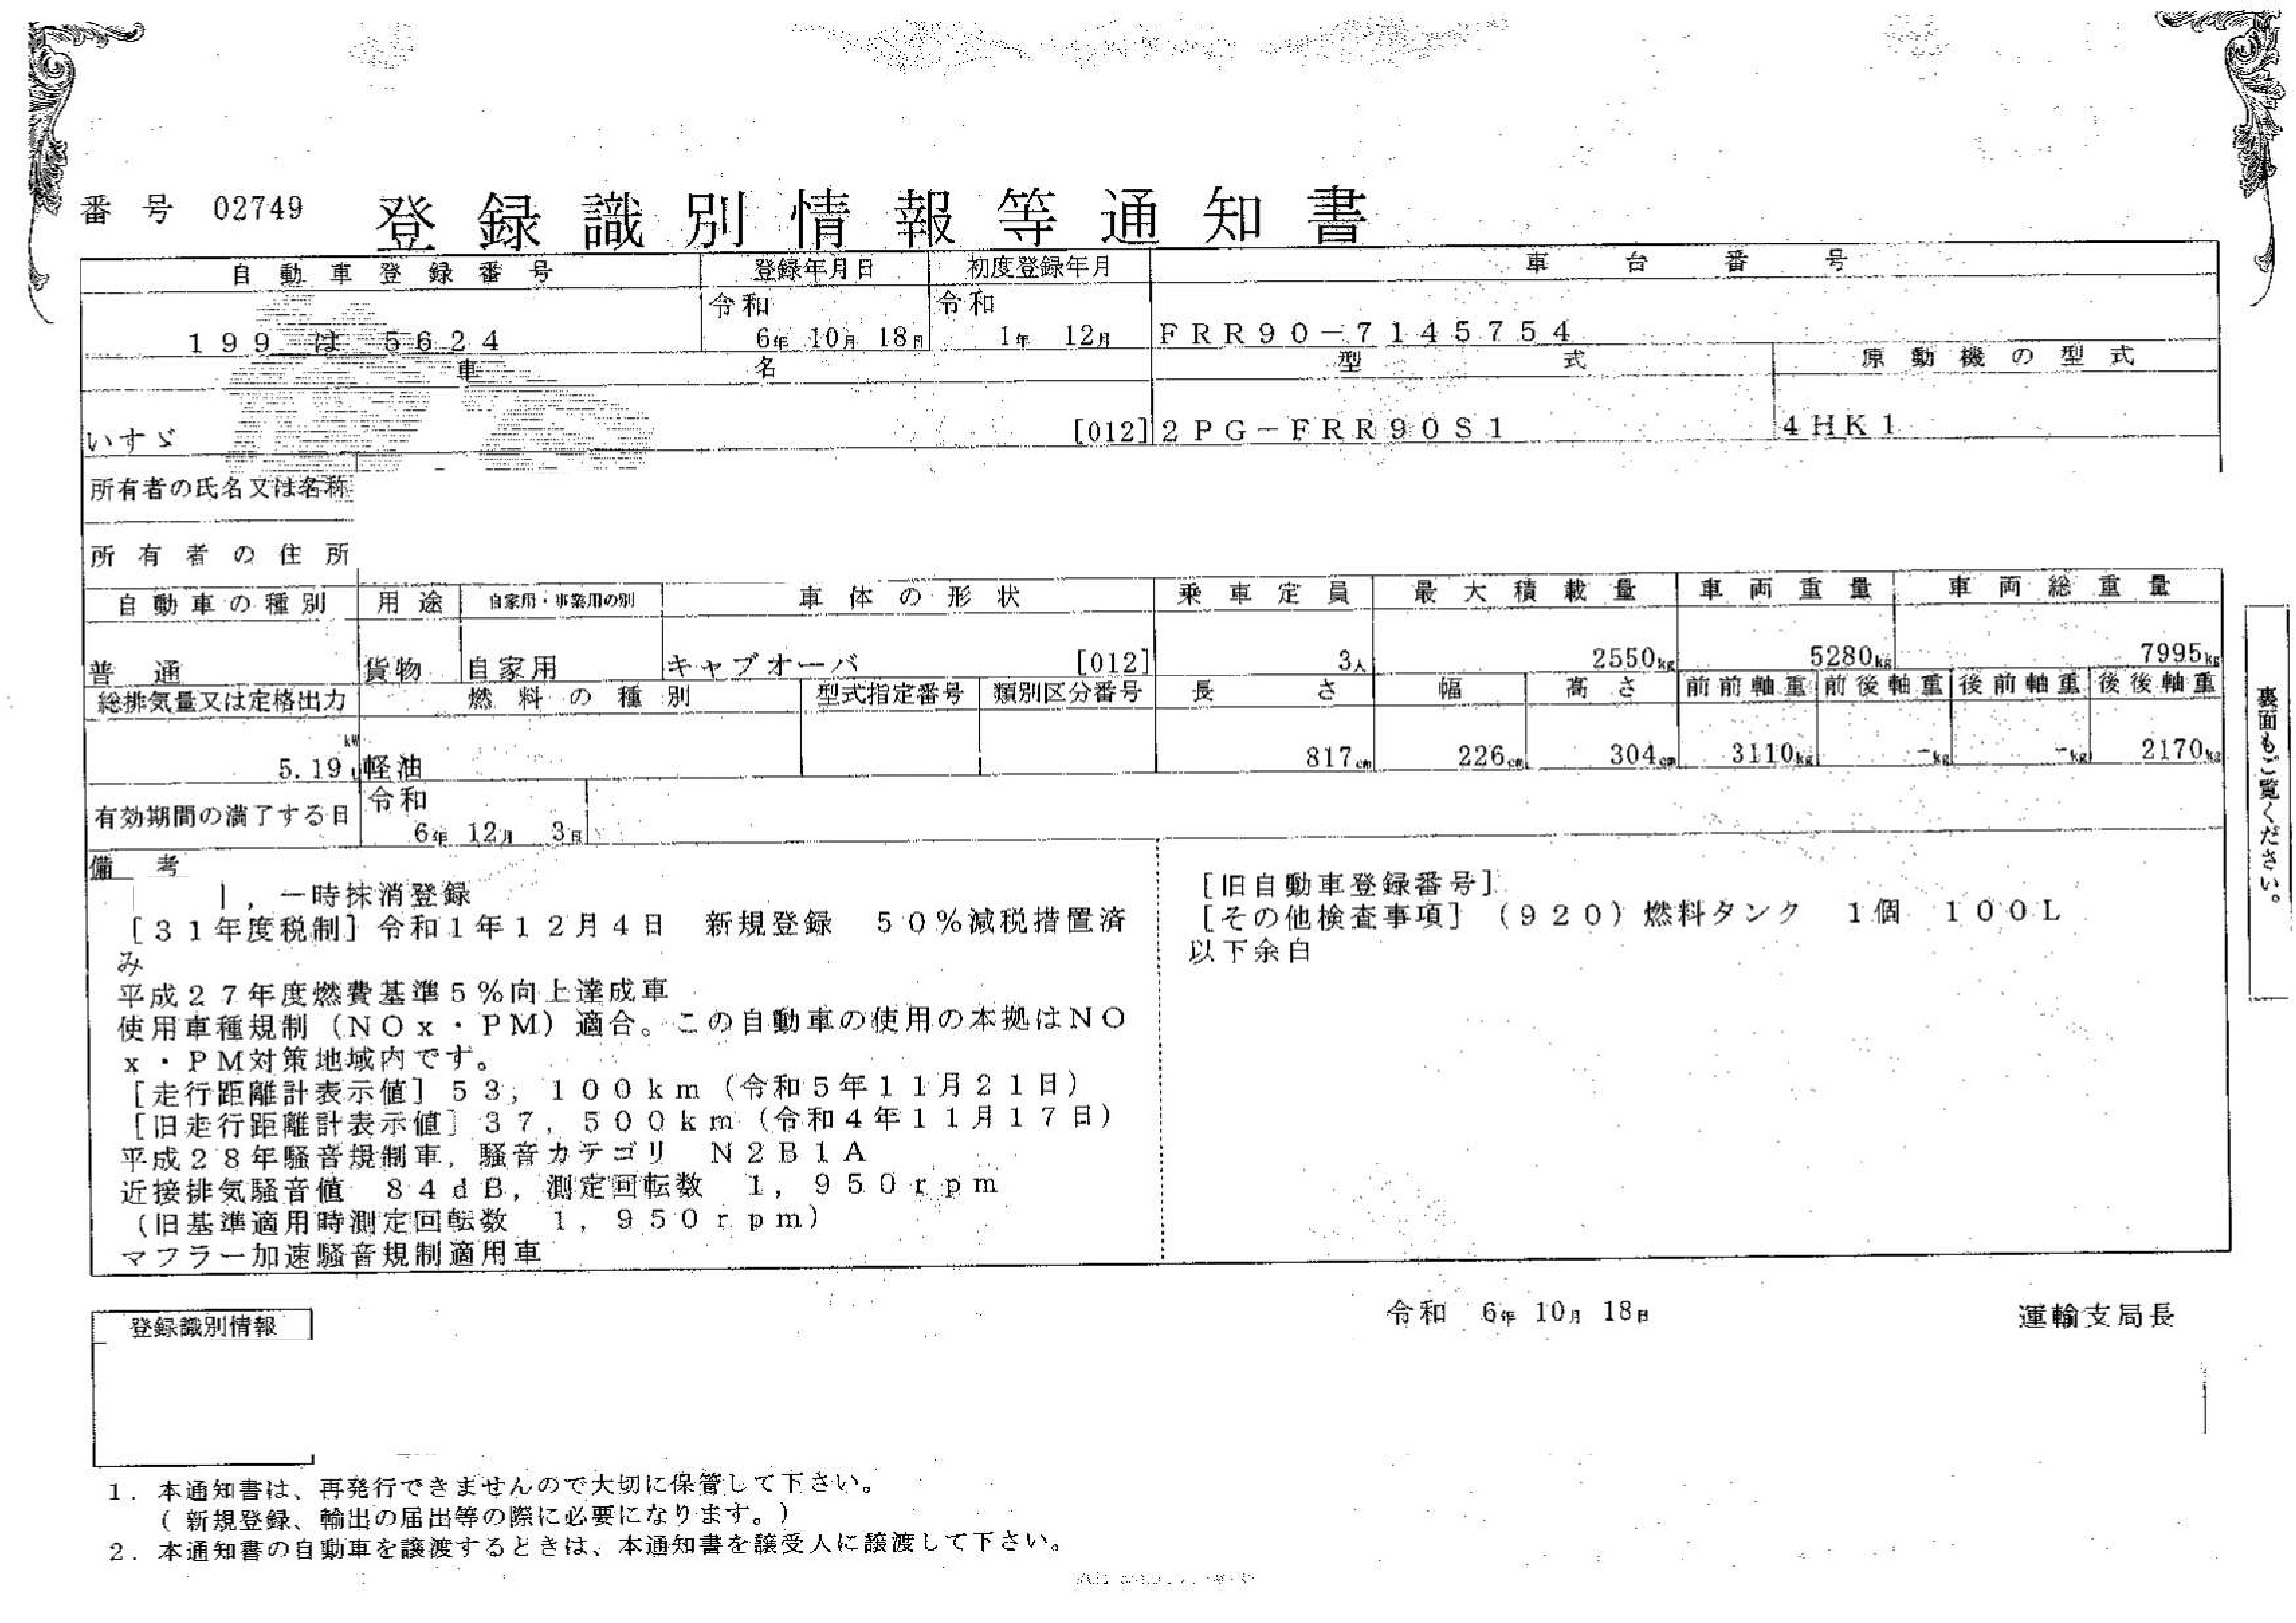 番号 02749 登録識別情報等通知書
自動車登録番号 登録年月日 初度登録年月 車台番号
令和 令和
199 は 5624 6年 10月 18日 1年 12月 FRR90-7145754
車名 型式 原動機の型式
いすゞ [012] 2PG-FRR90S1 4HK1
所有者の氏名又は名称
所有者の住所
自動車の種別 用途 自家用・事業用の別 車体の形状 乗車定員 最大積載量 車両重量 車両総重量
普通 貨物 自家用 キャブオーバ [012] 3人 2550kg 5280kg 7995kg
総排気量又は定格出力 燃料の種別 型式指定番号 類別区分番号 長さ 幅 高さ 前前軸重 前後軸重 後前軸重 後後軸重
kW
5.19 軽油 817cm 226cm 304cm 3110kg -kg -kg 2170kg
有効期間の満了する日 令和
6年 12月 3日
備考
, 一時抹消登録
[31年度税制] 令和1年12月4日 新規登録 50%減税措置済
み
平成27年度燃費基準5%向上達成車
使用車種規制(NOx・PM)適合。この自動車の使用の本拠はNO
x・PM対策地域内です。
[走行距離計表示値] 53,100km (令和5年11月21日)
[旧走行距離計表示値] 37,500km (令和4年11月17日)
平成28年騒音規制車, 騒音カテゴリ N2B1A
近接排気騒音値 84dB, 測定回転数 1,950rpm
(旧基準適用時測定回転数 1,950rpm)
マフラー加速騒音規制適用車
[旧自動車登録番号]
[その他検査事項] (920)燃料タンク 1個 100L
以下余白
裏面もご覧ください。
令和 6年 10月 18日 運輸支局長
登録識別情報
1. 本通知書は、再発行できませんので大切に保管して下さい。
(新規登録、輸出の届出等の際に必要になります。)
2. 本通知書の自動車を譲渡するときは、本通知書を譲受人に譲渡して下さい。